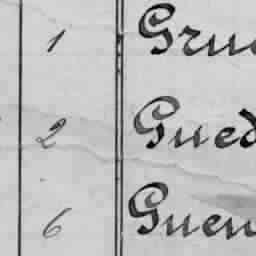 1 Gru
2 Gued
6 Guen